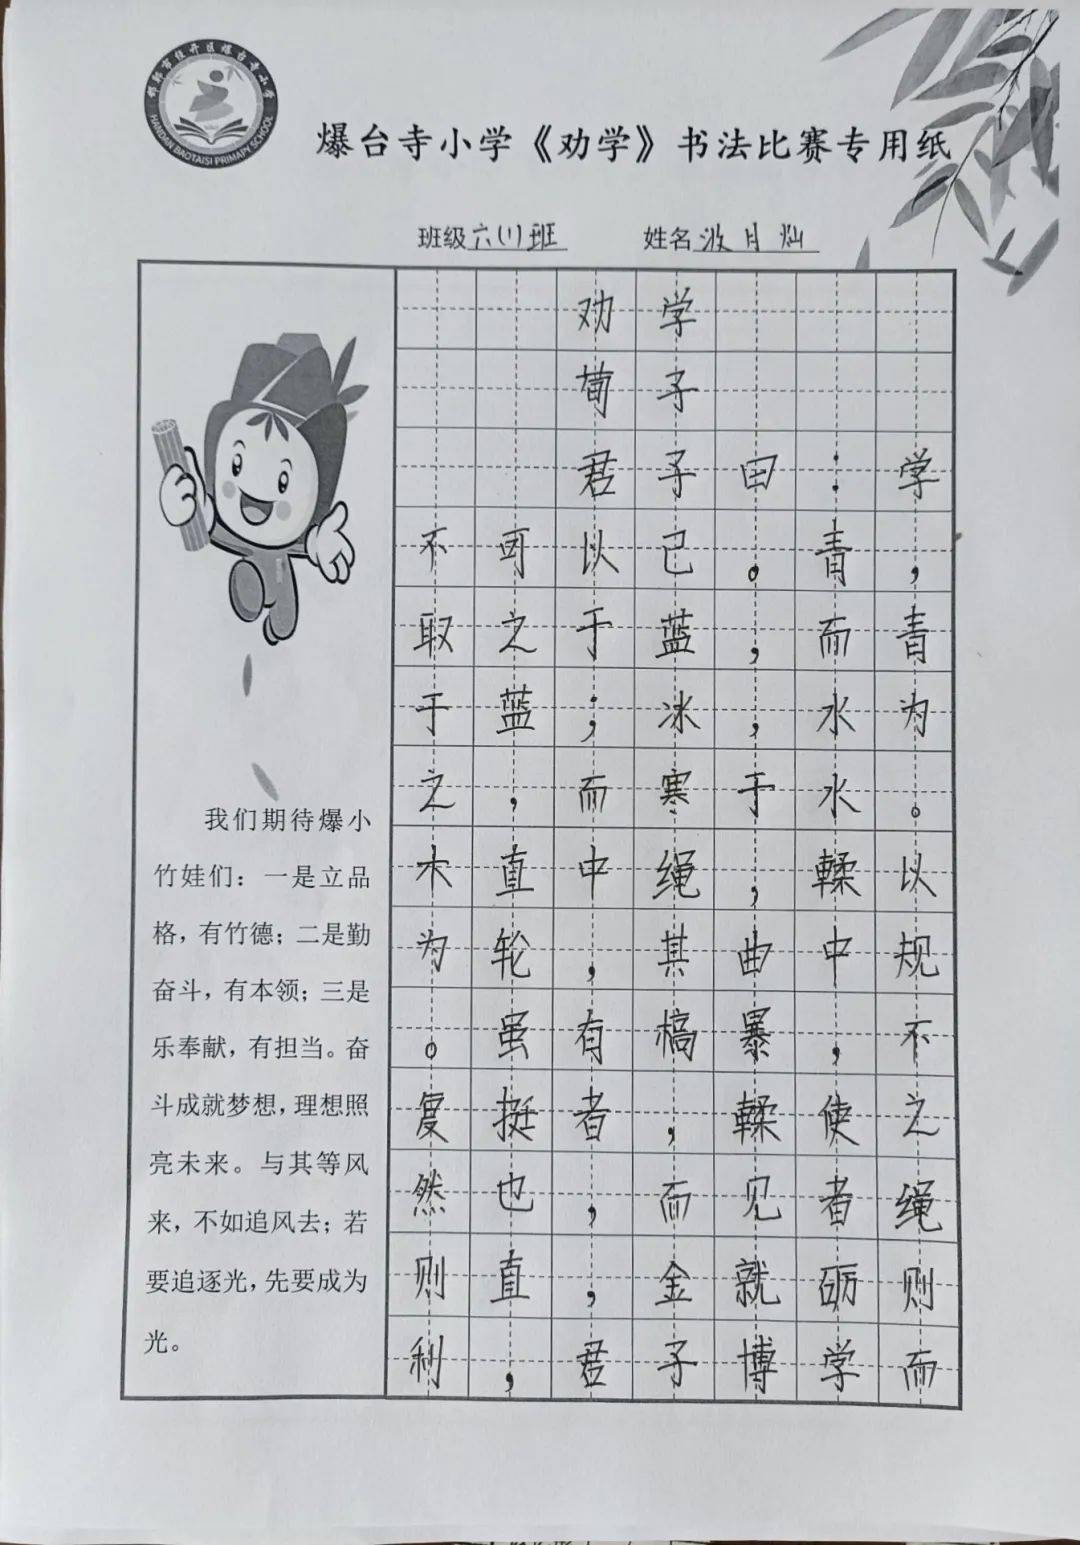 邯郸市经开区爆台寺小学
HANDAN BAOTAISI PRIMARY SCHOOL
爆台寺小学《劝学》书法比赛专用纸
班级 六(1)班 姓名 月灿
我们期待爆小
竹娃们：一是立品
格，有竹德；二是勤
奋斗，有本领；三是
乐奉献，有担当。奋
斗成就梦想，理想照
亮未来。与其等风
来，不如追风去；若
要追逐光，先要成为
光。
劝学
荀子
君子曰：学
不可以已。青，
取之于蓝，而青
于蓝；冰，水为
之，而寒于水。
木直中绳，輮以
为轮，其曲中规
。虽有槁暴，不
复挺者，輮使之
然也，而见者绳
则直，金就砺则
利，君子博学而